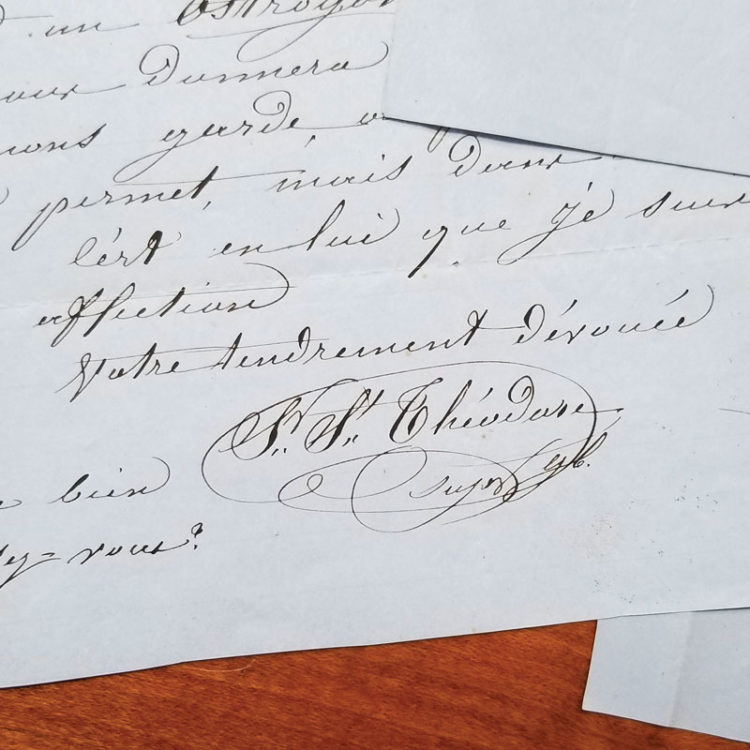 un Ostrogot
donnera
ons garde, a
permet, mais dans
c'est en lui que je suis
affection
Votre tendrement dévouée
Sr. St. Théodore
supre gle.
bien
ez-vous?